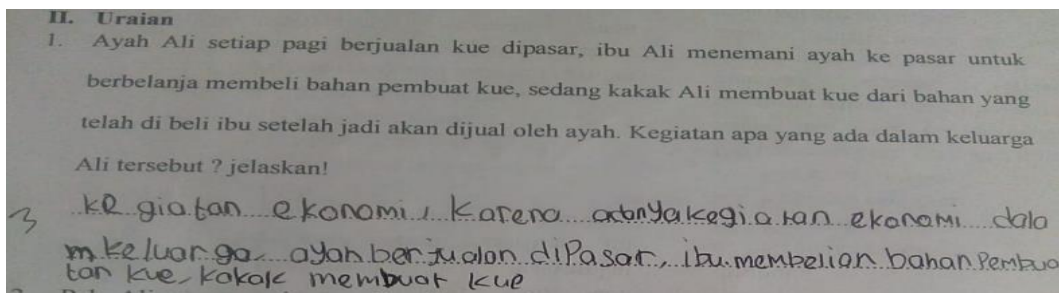 II. Uraian
1. Ayah Ali setiap pagi berjualan kue dipasar, ibu Ali menemani ayah ke pasar untuk
berbelanja membeli bahan pembuat kue, sedang kakak Ali membuat kue dari bahan yang
telah di beli ibu setelah jadi akan dijual oleh ayah. Kegiatan apa yang ada dalam keluarga
Ali tersebut ? jelaskan!
3 kegiatan ekonomi, Karena adanya kegiatan ekonomi dala
m keluarga, ayah berjualan diPasar, ibu membelian bahan Pembua
tan kue, kakak membuat kue